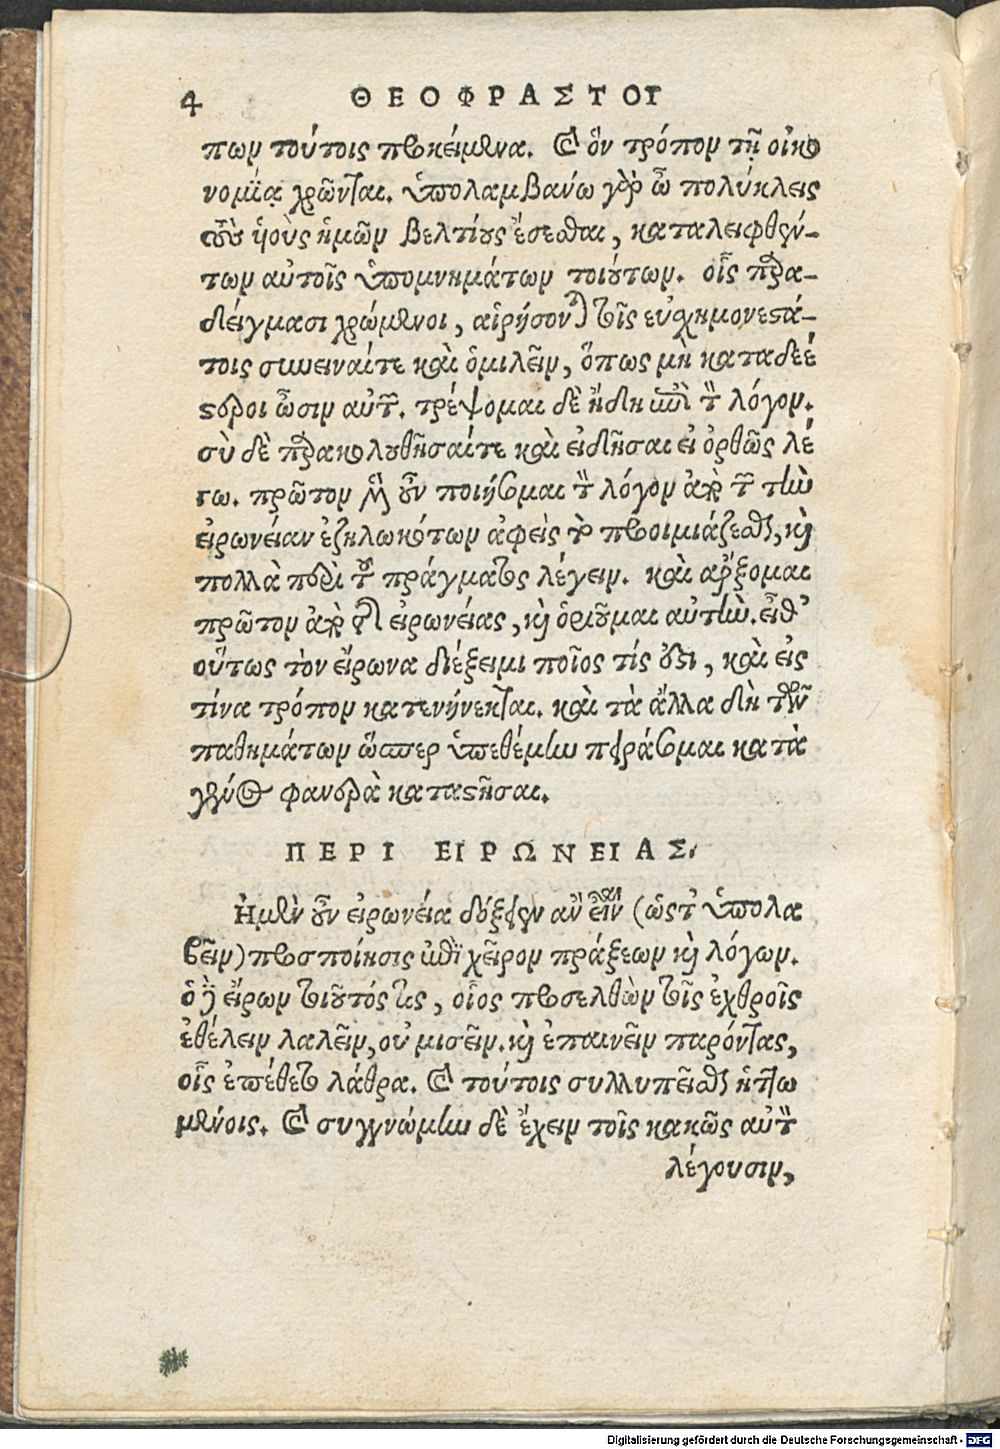 4 ΘΕΟΦΡΑΣΤΟΥ
πων τούτοις προκείμενα. καὶ ὃν τρόπον τῇ οἰκο
νομίᾳ χρῶνται. ὑπολαμβάνω γὰρ ὦ πολύκλεις
τοὺς ὑιοὺς ἡμῶν βελτίους ἔσεσθαι, καταλειφθέν-
των αὐτοῖς ὑπομνημάτων τοιούτων. οἷς παρα-
δείγμασι χρώμενοι, αἱρήσονται τοῖς εὐσχημονεστά-
τοις συνειναίτε καὶ ὁμιλεῖν, ὅπως μὴ καταδεέ
στεροι ὦσιν αὐτῶν. τρέψομαι δὲ ἤδη ἐπὶ τὸν λόγον.
σὺ δὲ παρακολουθῆσαίτε καὶ εἰδῆσαι εἰ ὀρθῶς λέ
γω. πρῶτον μὲν οὖν ποιήσομαι τὸν λόγον ἀπὸ τῶν τὴν
εἰρωνείαν ἐζηλωκότων ἀφεὶς τὸ προοιμιάζεσθαι, καὶ
πολλὰ περὶ τοῦ πράγματος λέγειν. καὶ αρξομαι
πρῶτον ἀπὸ τῆς εἰρωνείας, καὶ ὁριοῦμαι αὐτὴν. εἶθ'
οὕτως τὸν εἴρωνα διέξειμι ποῖος τίς ἐστι, καὶ εἰς
τίνα τρόπον κατενήνεκται. καὶ τὰ ἄλλα δὴ τῶν
παθημάτων ὥσπερ ὑπεθέμην πειράσομαι κατὰ
γένος φανερὰ καταστῆσαι.
ΠΕΡΙ ΕΙΡΩΝΕΙΑΣ.
Ἡμὲν οὖν εἰρωνεία δόξειεν αὒ εἶναι (ὡς τ ὑπολα
βεῖν) προσποίησις ἐπὶ χεῖρον πράξεων καὶ λόγων.
ὁ δὲ εἴρων τοιοῦτός τις, οἷος προσελθὼν τοῖς ἐχθροῖς
ἐθέλειν λαλεῖν, οὐ μισεῖν. καὶ ἐπαινεῖν παρόντας,
οἷς ἐπέθετο λάθρα. καὶ τούτοις συλλυπεῖσθαι ἡττω
μένοις. καὶ συγγνώμην δὲ ἔχειν τοῖς κακῶς αὐτὸν
λέγουσιν,